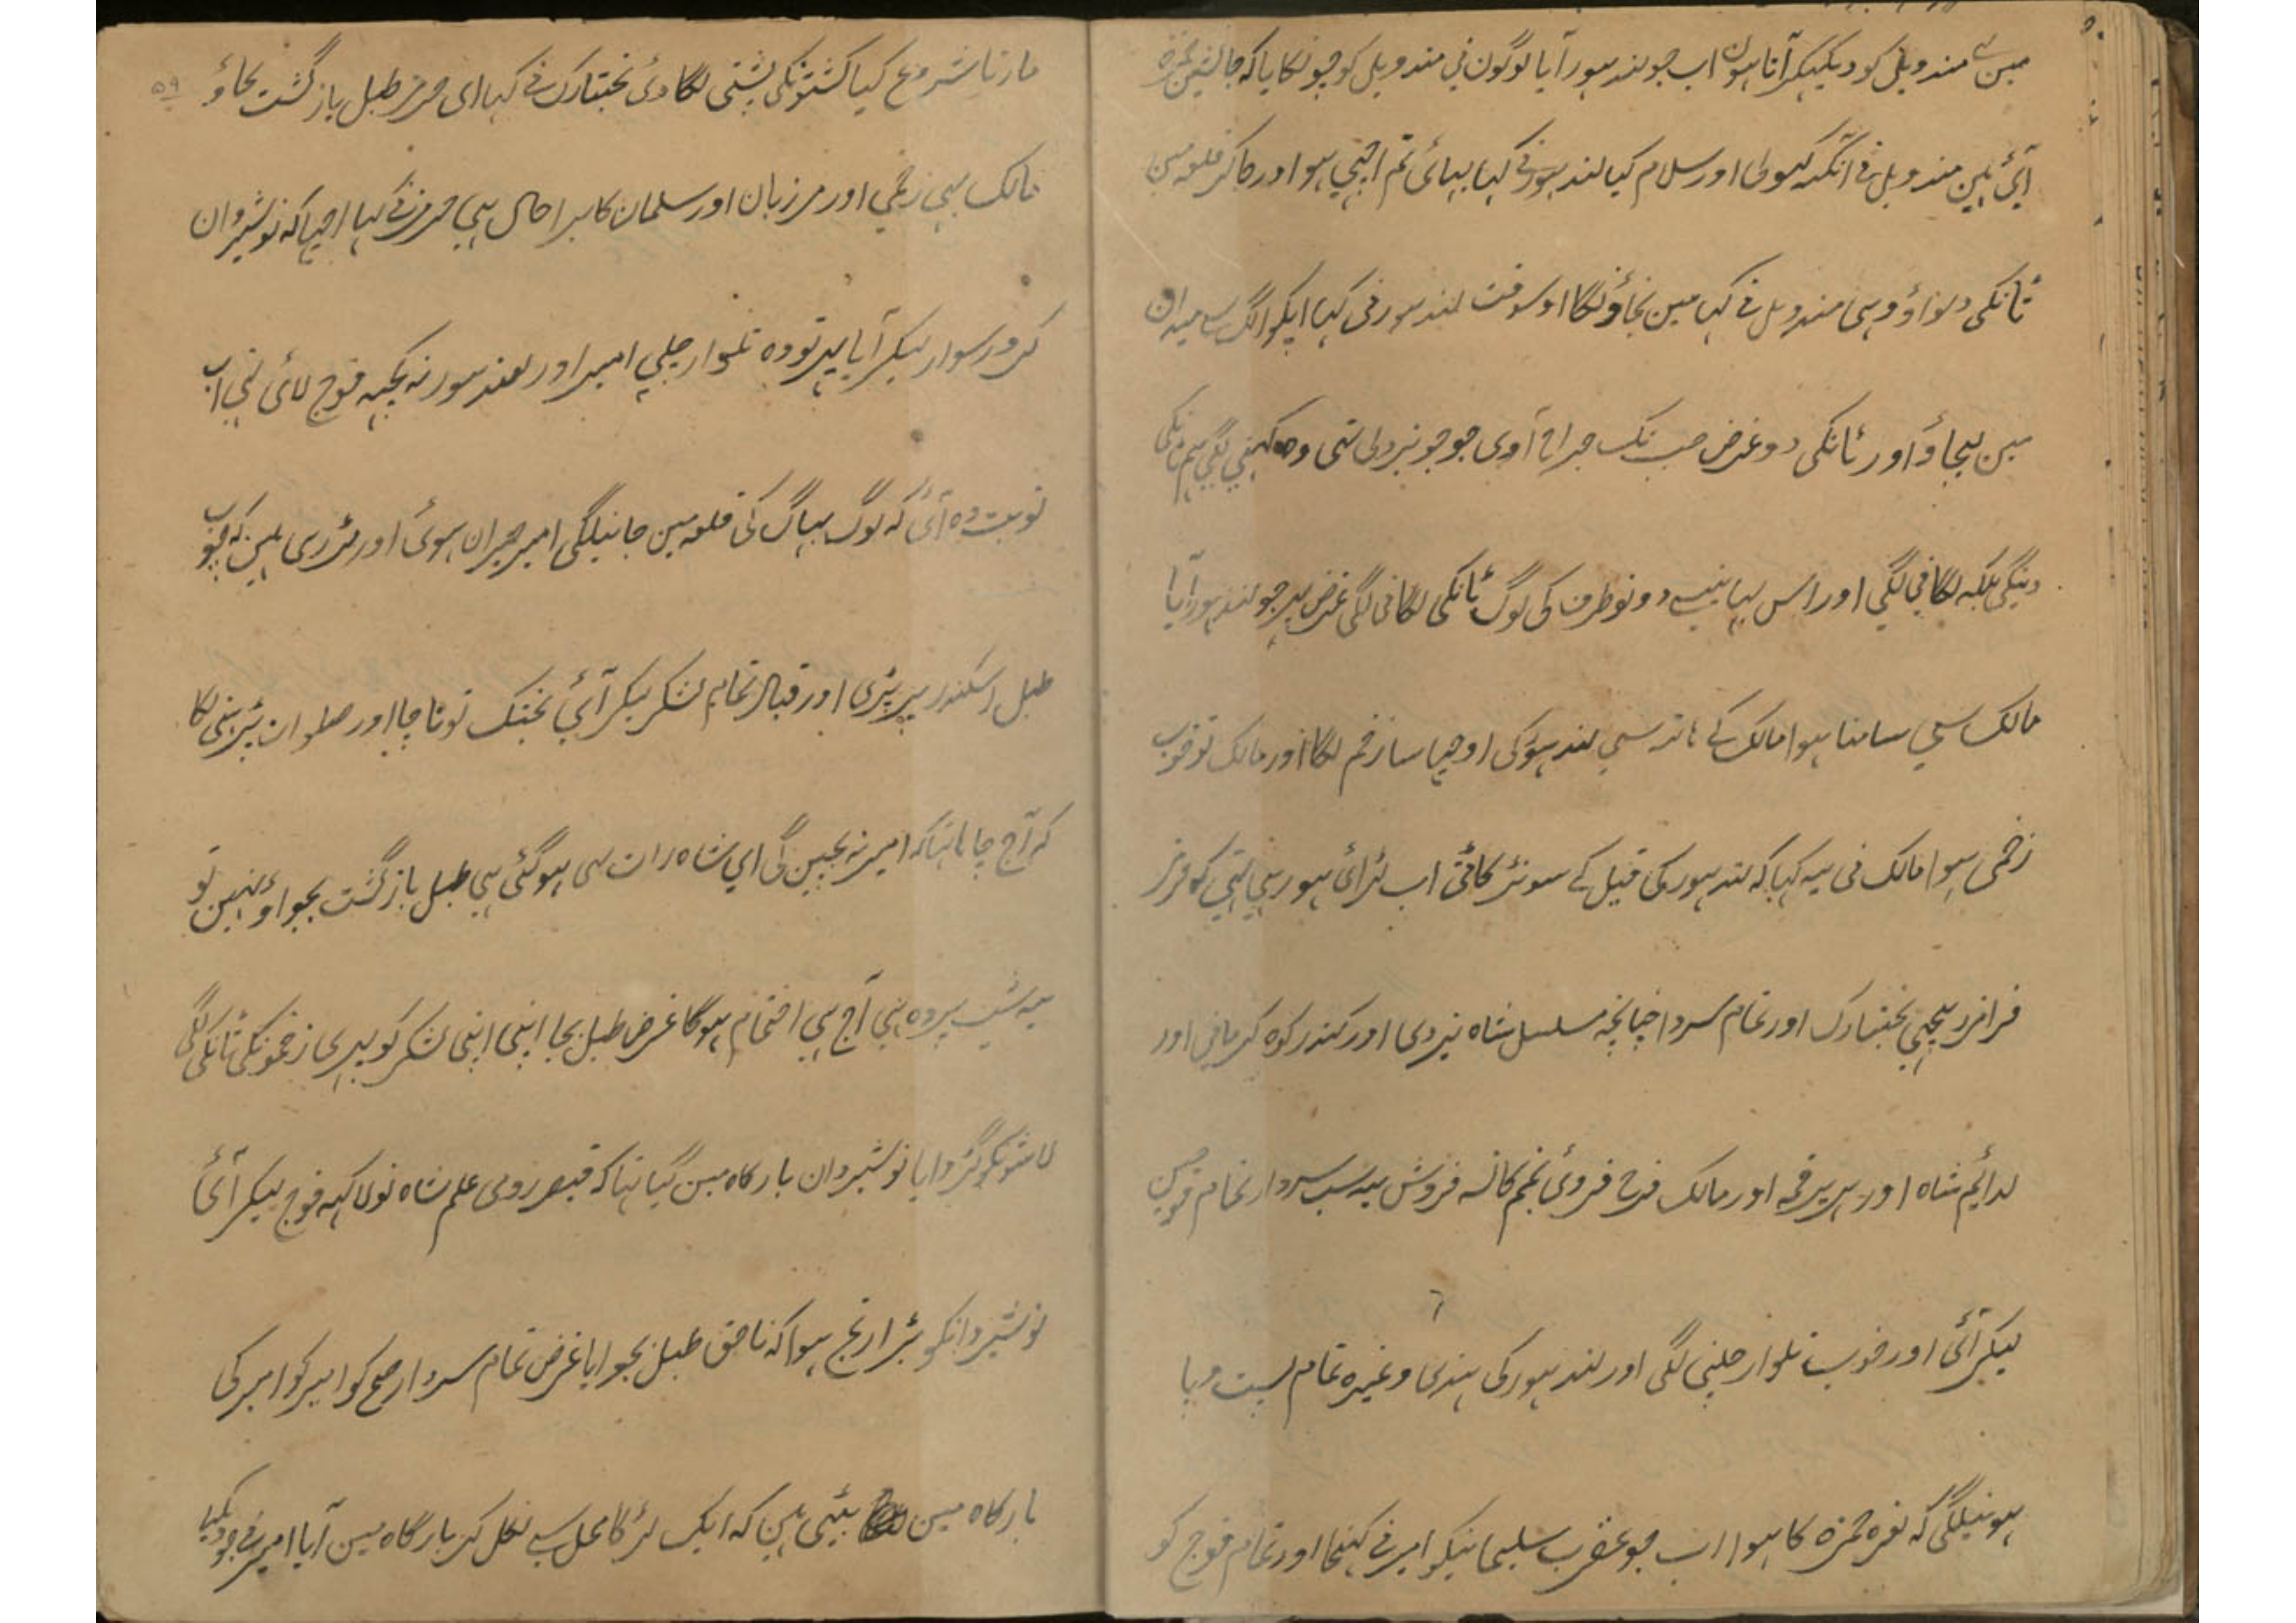 مین سے مندویل کو دیکہکر آتا ہون اب جو لندہور آیا لوگون نی مندویل کو چونکایا کہ جانشین حمزہ
آئی ہین مندویل نی آنکہہ کہولی اور سلام کیا لندہور نی کہا بہائی تم اچہی ہو اور جاکر قلعہ مین
ٹانکی دلواؤ وہی مندویل نی کہا مین نجاؤنگا اوسوقت لندہور نی کہا اپکو الگ سی میدان
مین لیجاؤ اور ٹانکی دو غرض جب تک جراح آوی جو جو نیزدلی تہی وہ کہنی لگی ہم ٹانکی
دینگی بلکہ لگانی لگی اور اس بہانیسے دونو طرف کی لوگ ٹانکی لگانی لگی غرض پہر جو لندہور آیا
مالک سی سامنا ہوا مالک کے ہاتہ سی لندہور کی اوچہا سا زخم لگا اور مالک تو خوب
زخمی ہوا مالک نی یہ کہا کہ لندہور کی فیل کے سونڈ کاٹی اب لڑائی ہو رہی تہی کہ ہرمز
فرامرز بیچی بختیارک اور تمام سردار چنانچہ مسلسل شاہ یزدی اور کندر کوہ کرمانی اور
لدائم شاہ اور ہریر قمہ اور مالک فرخ فروئی نجم کاسہ فروش یہ سب سردار تمام فوجین
لیکر آئی اور خوب تلوار چلنی لگی اور لندہور کی ہندی وغیرہ تمام پست و پا
ہونیلگی کہ نعرہ حمزہ کا ہوا اب جو عقرب سلیمانیکو امیر نی کہنچا اور تمام فوج کو
مارنا شروع کیا کشتونکی پشتی لگا دی بختیارک نی کہا ای ہرمز طبل بازگشت بجاؤ
مالک بہی زخمی اور مرزبان اور سلمان کا برا حال ہی ہرمز نی کہا اچہا کہ نوشیروان
کرور سوار لیکر آیا پہر تو وہ تلوار چلی امیر اور لعندہور نہ کچہہ فوج لائی تہی اب
نوبت وہ آئی کہ لوگ بہاگ کی قلعہ مین جانیلگی امیر حیران ہوئی اور لڑ رہی ہین کہ چوب
طبل اسکندر پر پڑی اور قباد تمام لشکر لیکر آئی بختک تو ناچا اور صلوات پڑہنی لگا
کہ آج چاہا تہا کہ امیر نہ بچین گی ای شاہ رات ہی ہوگئی ہی طبل بازگشت بجواؤ نہین تو
یہ شب پردہ ہی آج ہی اختتام ہوگا غرض طبل بجا اپنی اپنی لشکر کو پہری زخمونکی ٹانکی لگی
لاشونکو گڑوایا نوشیروان بارگاہ مین گیا تہا کہ قیصر رومی علم شاہ نو لاکہہ فوج لیکر آئی
نوشیروانکو بڑا رنج ہوا کہ ناحق طبل بجوایا غرض تمام سردار صبح کو امیر کو امیر کی
بارگاہ مین بیٹہی ہین کہ ایک لڑکا محل سے نکل کر بارگاہ مین آیا امیر نی جو دیکہا
۵۹